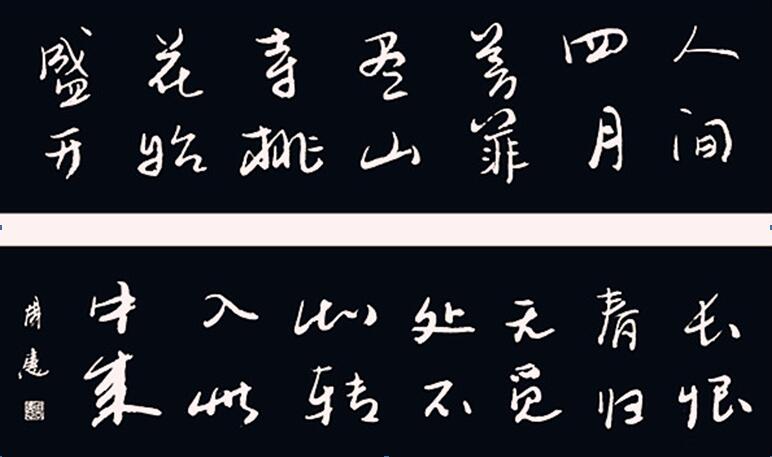 人间
四月
芳菲
尽山
寺桃
花始
盛开
长恨
春归
无觅
处不
知转
入此
中来